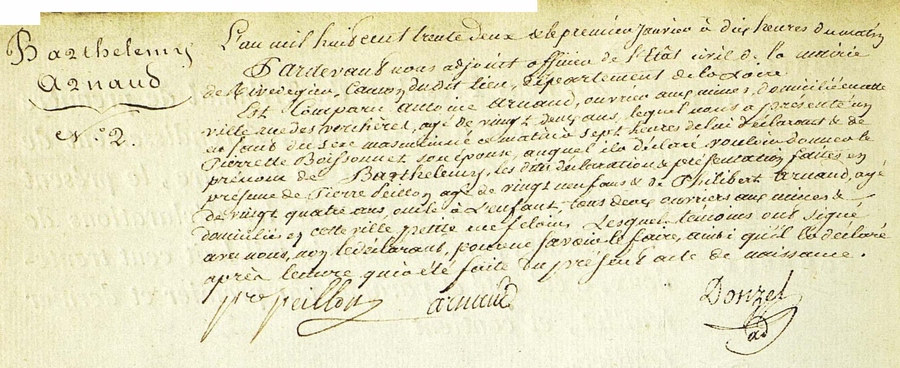 Barthelemy
Arnaud
N.º 2.
L'an mil huit cent trente deux & le premier Janvier à dix heures du matin
Pardevant nous adjoint officier de l'Etât civil de la mairie
de Rivedegier, Canton dudit lieu, département de la Loire
Est Comparu Antoine Arnaud, ouvrier aux mines, domicilié en cette
ville rue des verchères, agé de vingt deux ans, lequel nous a présenté un
enfant du sexe masculin né ce matin à sept heures de lui déclarant & de
Pierrette Boissonnet, son épouse, auquel il a déclaré vouloir donner le
prénom de Barthelemy, les dites déclaration & présentation faites en
présence de Pierre Peillon agé de vingt neuf ans & de Philibert Arnaud, agé
de vingt quatre ans, oncle à l'enfant, tous deux ouvriers aux mines &
domiciliés en cette ville petite rue feloin. Lesquels témoins ont signé
avec nous, non le déclarant, pour ne savoir le faire, ainsi qu'il l'a déclaré
après lecture qui a été faite du présent acte de naissance.
pre peillon arnaud Donzel
ad